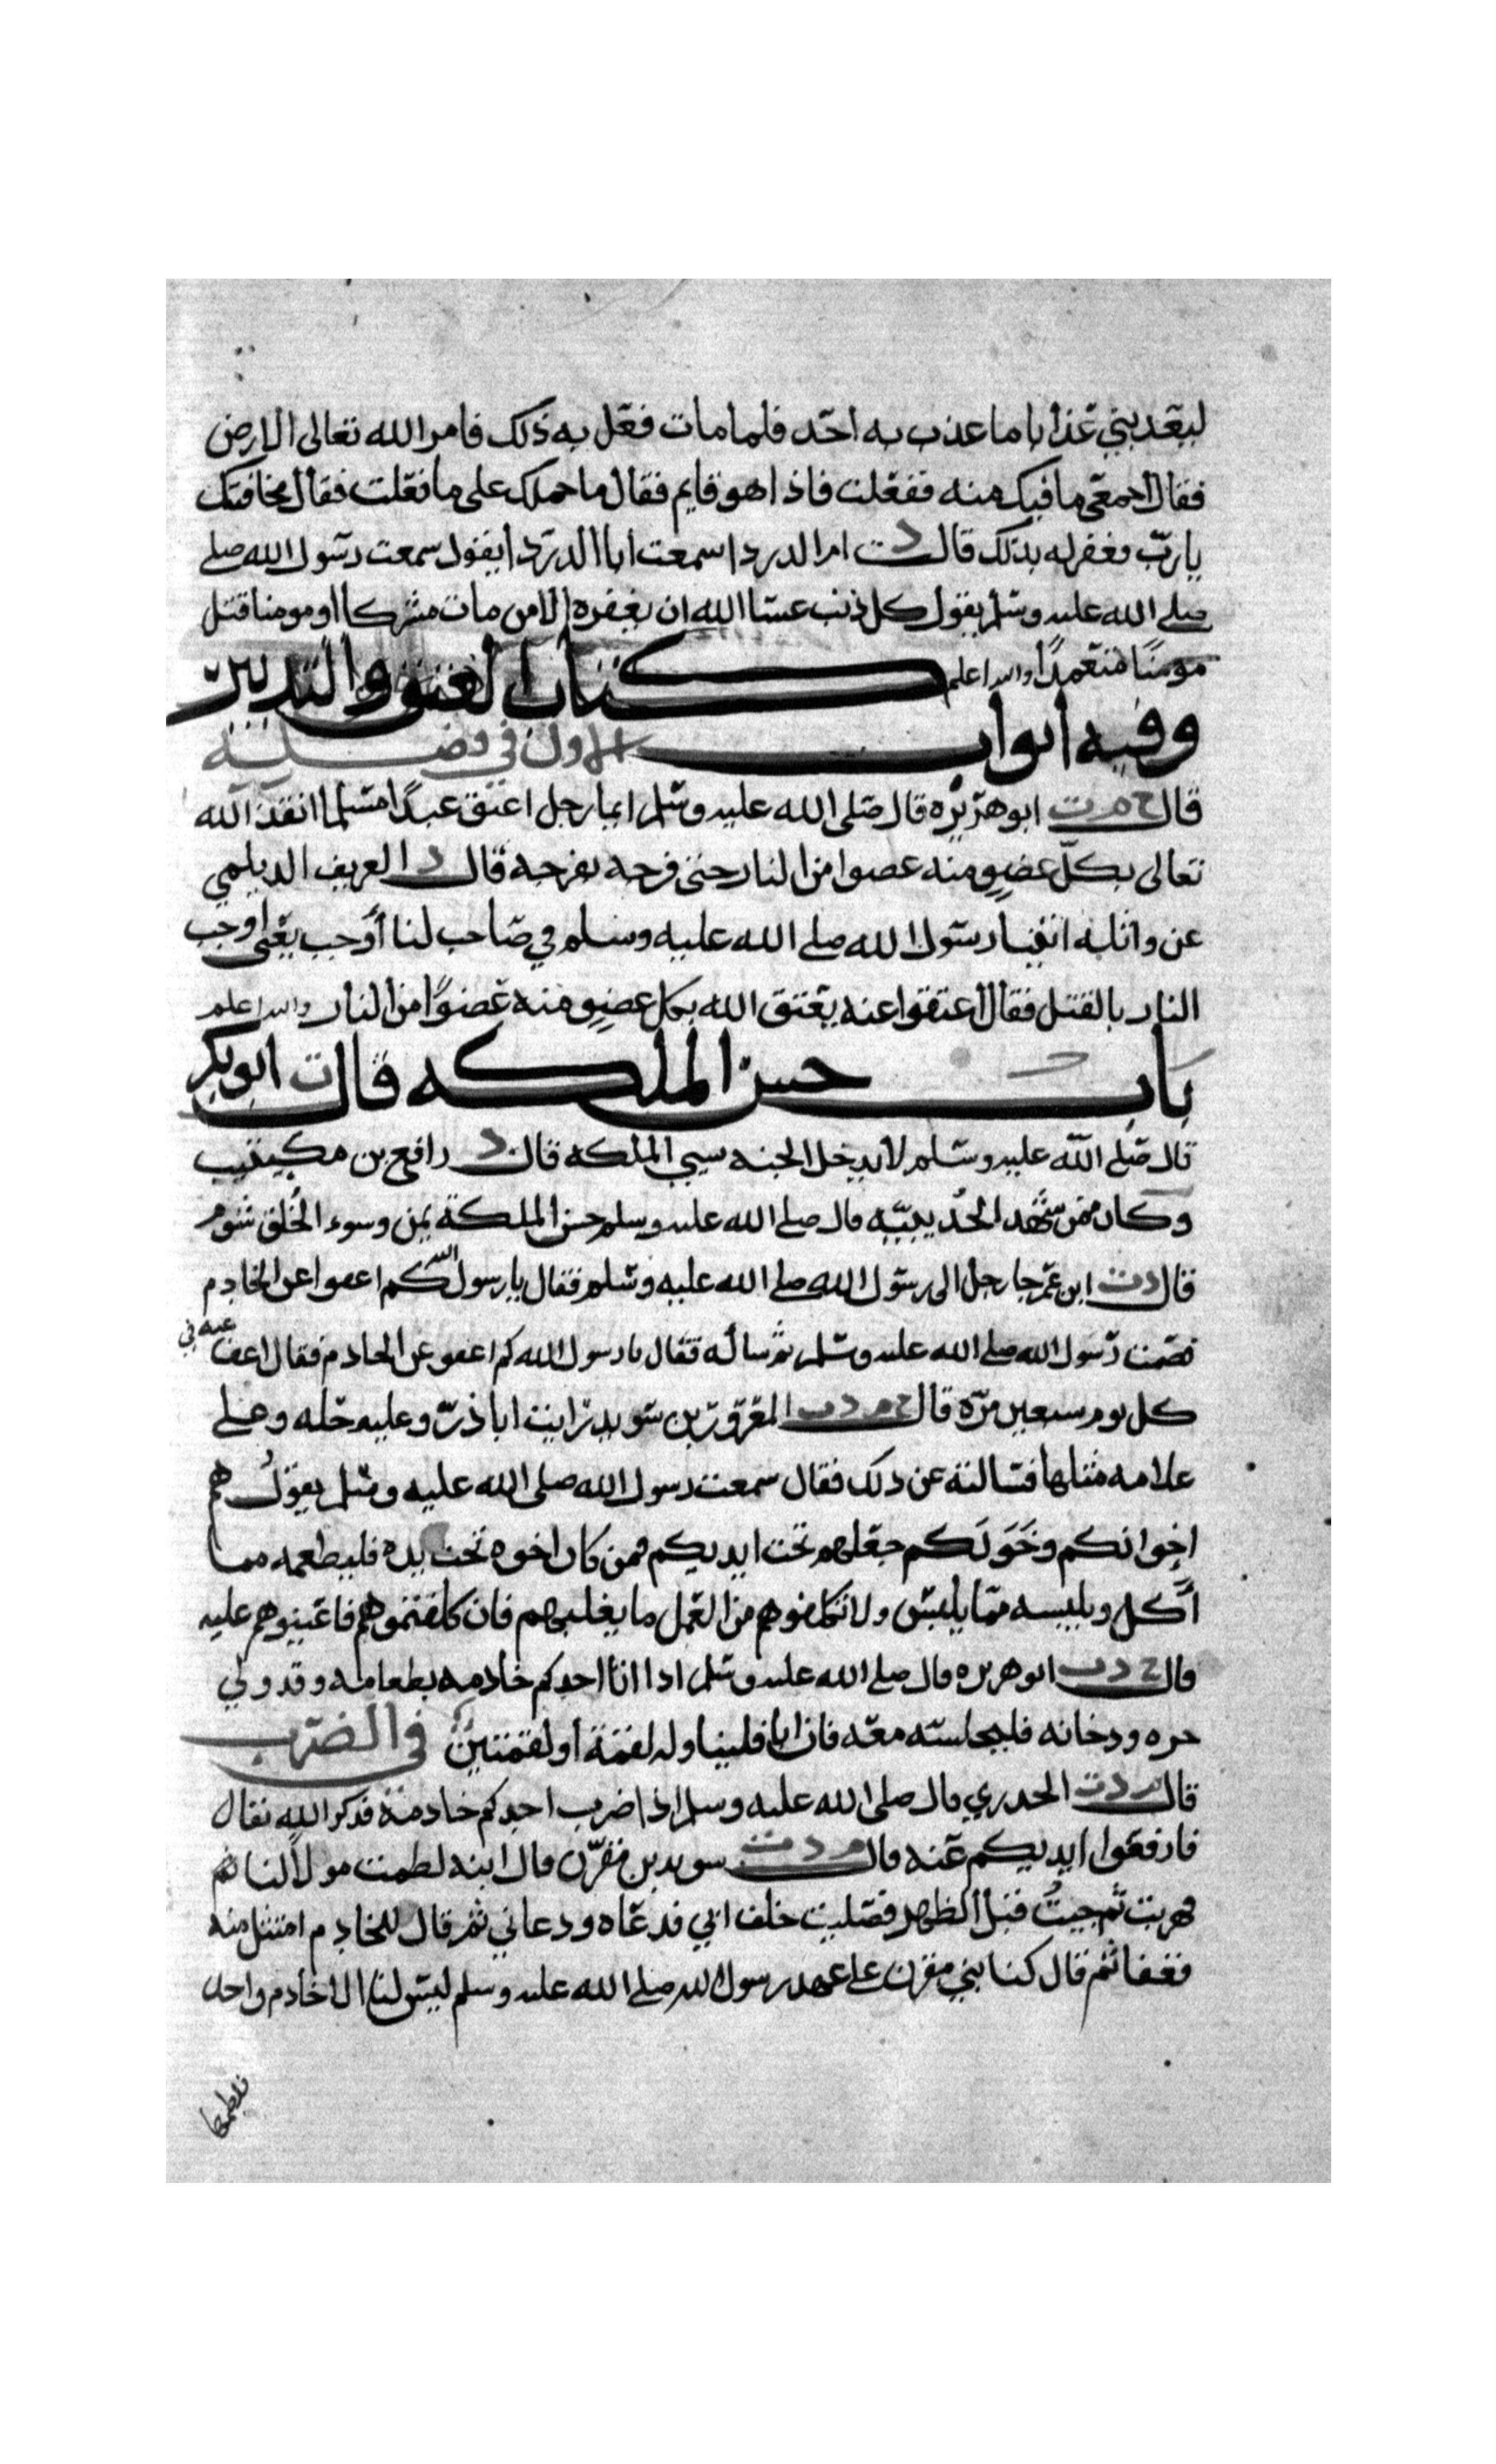 ليعذبني عذابا ما عذب به احد فلما مات فعل به ذلك فامر الله تعالى الارض
فقال اجمعي ما فيك منه ففعلت فاذا هو قايم فقال ما حملك على ما فعلت فقال مخافتك
يا رب فغفر له بذلك قالت د ام الدرداء سمعت ابا الدرداء يقول سمعت رسول الله صلى
صلى الله عليه وسلم يقول كل ذنب عسا الله ان يغفره الا من مات مشركا او مومنا قتل
مومنا متعمدا والله اعلم كتاب العتق والتدبير
وفيه ابواب الاول في فضيلة
قال ح م ت ابو هريره قال صلى الله عليه وسلم ايما رجل اعتق عبدا مسلما انقذ الله
تعالى بكل عضو منه عضوا من النار حتى فرجه بفرجه قال د العريف الديلمي
عن واثلة اتينا رسول الله صلى الله عليه وسلم في صاحب لنا أوجب يعنى اوجب
النار بالقتل فقال أعتقوا عنه يعتق الله بكل عضو منه عضوا من النار والله اعلم
باب حسن الملكه قال ت ابو بكر
قال صلى الله عليه وسلم لا يدخل الجنه سيي الملكه قال د رافع بن مكيتيب
وكان ممن شهد الحديبيه قال صلى الله عليه وسلم حسن الملكة يمن وسوء الخلق شوم
قال د ت ابن عمر جا رجل الى رسول الله صلى الله عليه وسلم فقال يا رسول الله كم اعفوا عن الخادم
فصمت رسول الله صلى الله عليه وسلم ثم ساله فقال يا رسول الله كم اعفو عن الخادم فقال اعف عنه في
كل يوم سبعين مرة قال ح م د ت المعرور بن سويد رايت ابا ذر وعليه حله وعلى
علامه مثلها فسالته عن ذلك فقال سمعت رسول الله صلى الله عليه وسلم يقول هم
اخوانكم وخولكم جعلهم تحت ايديكم فمن كان اخوه تحت يده فليطعمه مما
أكل ويلبسه مما يلبس ولا تكلفوهم من العمل ما يغلبهم فان كلفتموهم فاعينوهم عليه
قال ح د ت ابو هريره قال صلى الله عليه وسلم اذا اتا احدكم خادمه بطعامه وقد ولي
حره ودخانه فليجلسه معه فان ابا فليناوله لقمة او لقمتين في الضرب
قال م د ت الخدري قال صلى الله عليه وسلم اذا ضرب احدكم خادمه فذكر الله تعالى
فارفعوا ايديكم عنه قال م د ت سويد بن مقرن قال ابنه لطمت مولا لنا ثم
هربت ثم جيت قبل الظهر فصليت خلف ابي فدعاه ودعاني ثم قال للخادم امتثل منه
فعفا ثم قال كنا بني مقرن على عهد رسول الله صلى الله عليه وسلم ليس لنا الا خادم واحد
فلطمها